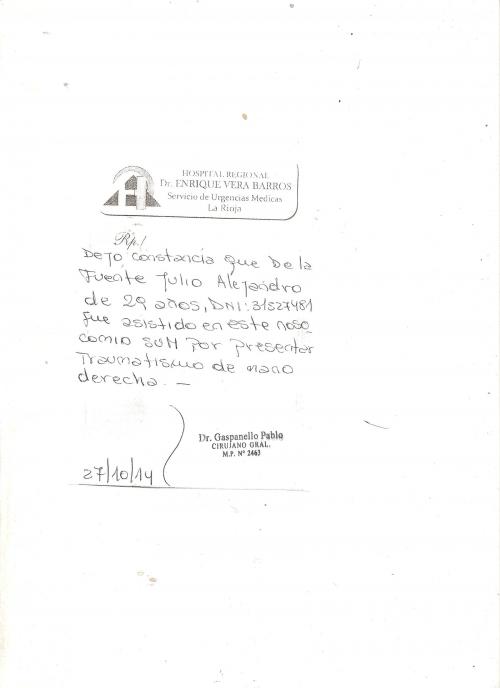 HOSPITAL REGIONAL
Dr. ENRIQUE VERA BARROS
Servicio de Urgencias Medicas
La Rioja
Rp./
Dejo constancia que De la
Fuente Julio Alejandro
de 29 años, DNI: 31527481
fue asistido en este noso
comio SUM por presentar
Traumatismo de mano
derecha. —
Dr. Gaspanello Pablo
CIRUJANO GRAL.
M.P. Nº 2463
27/10/14